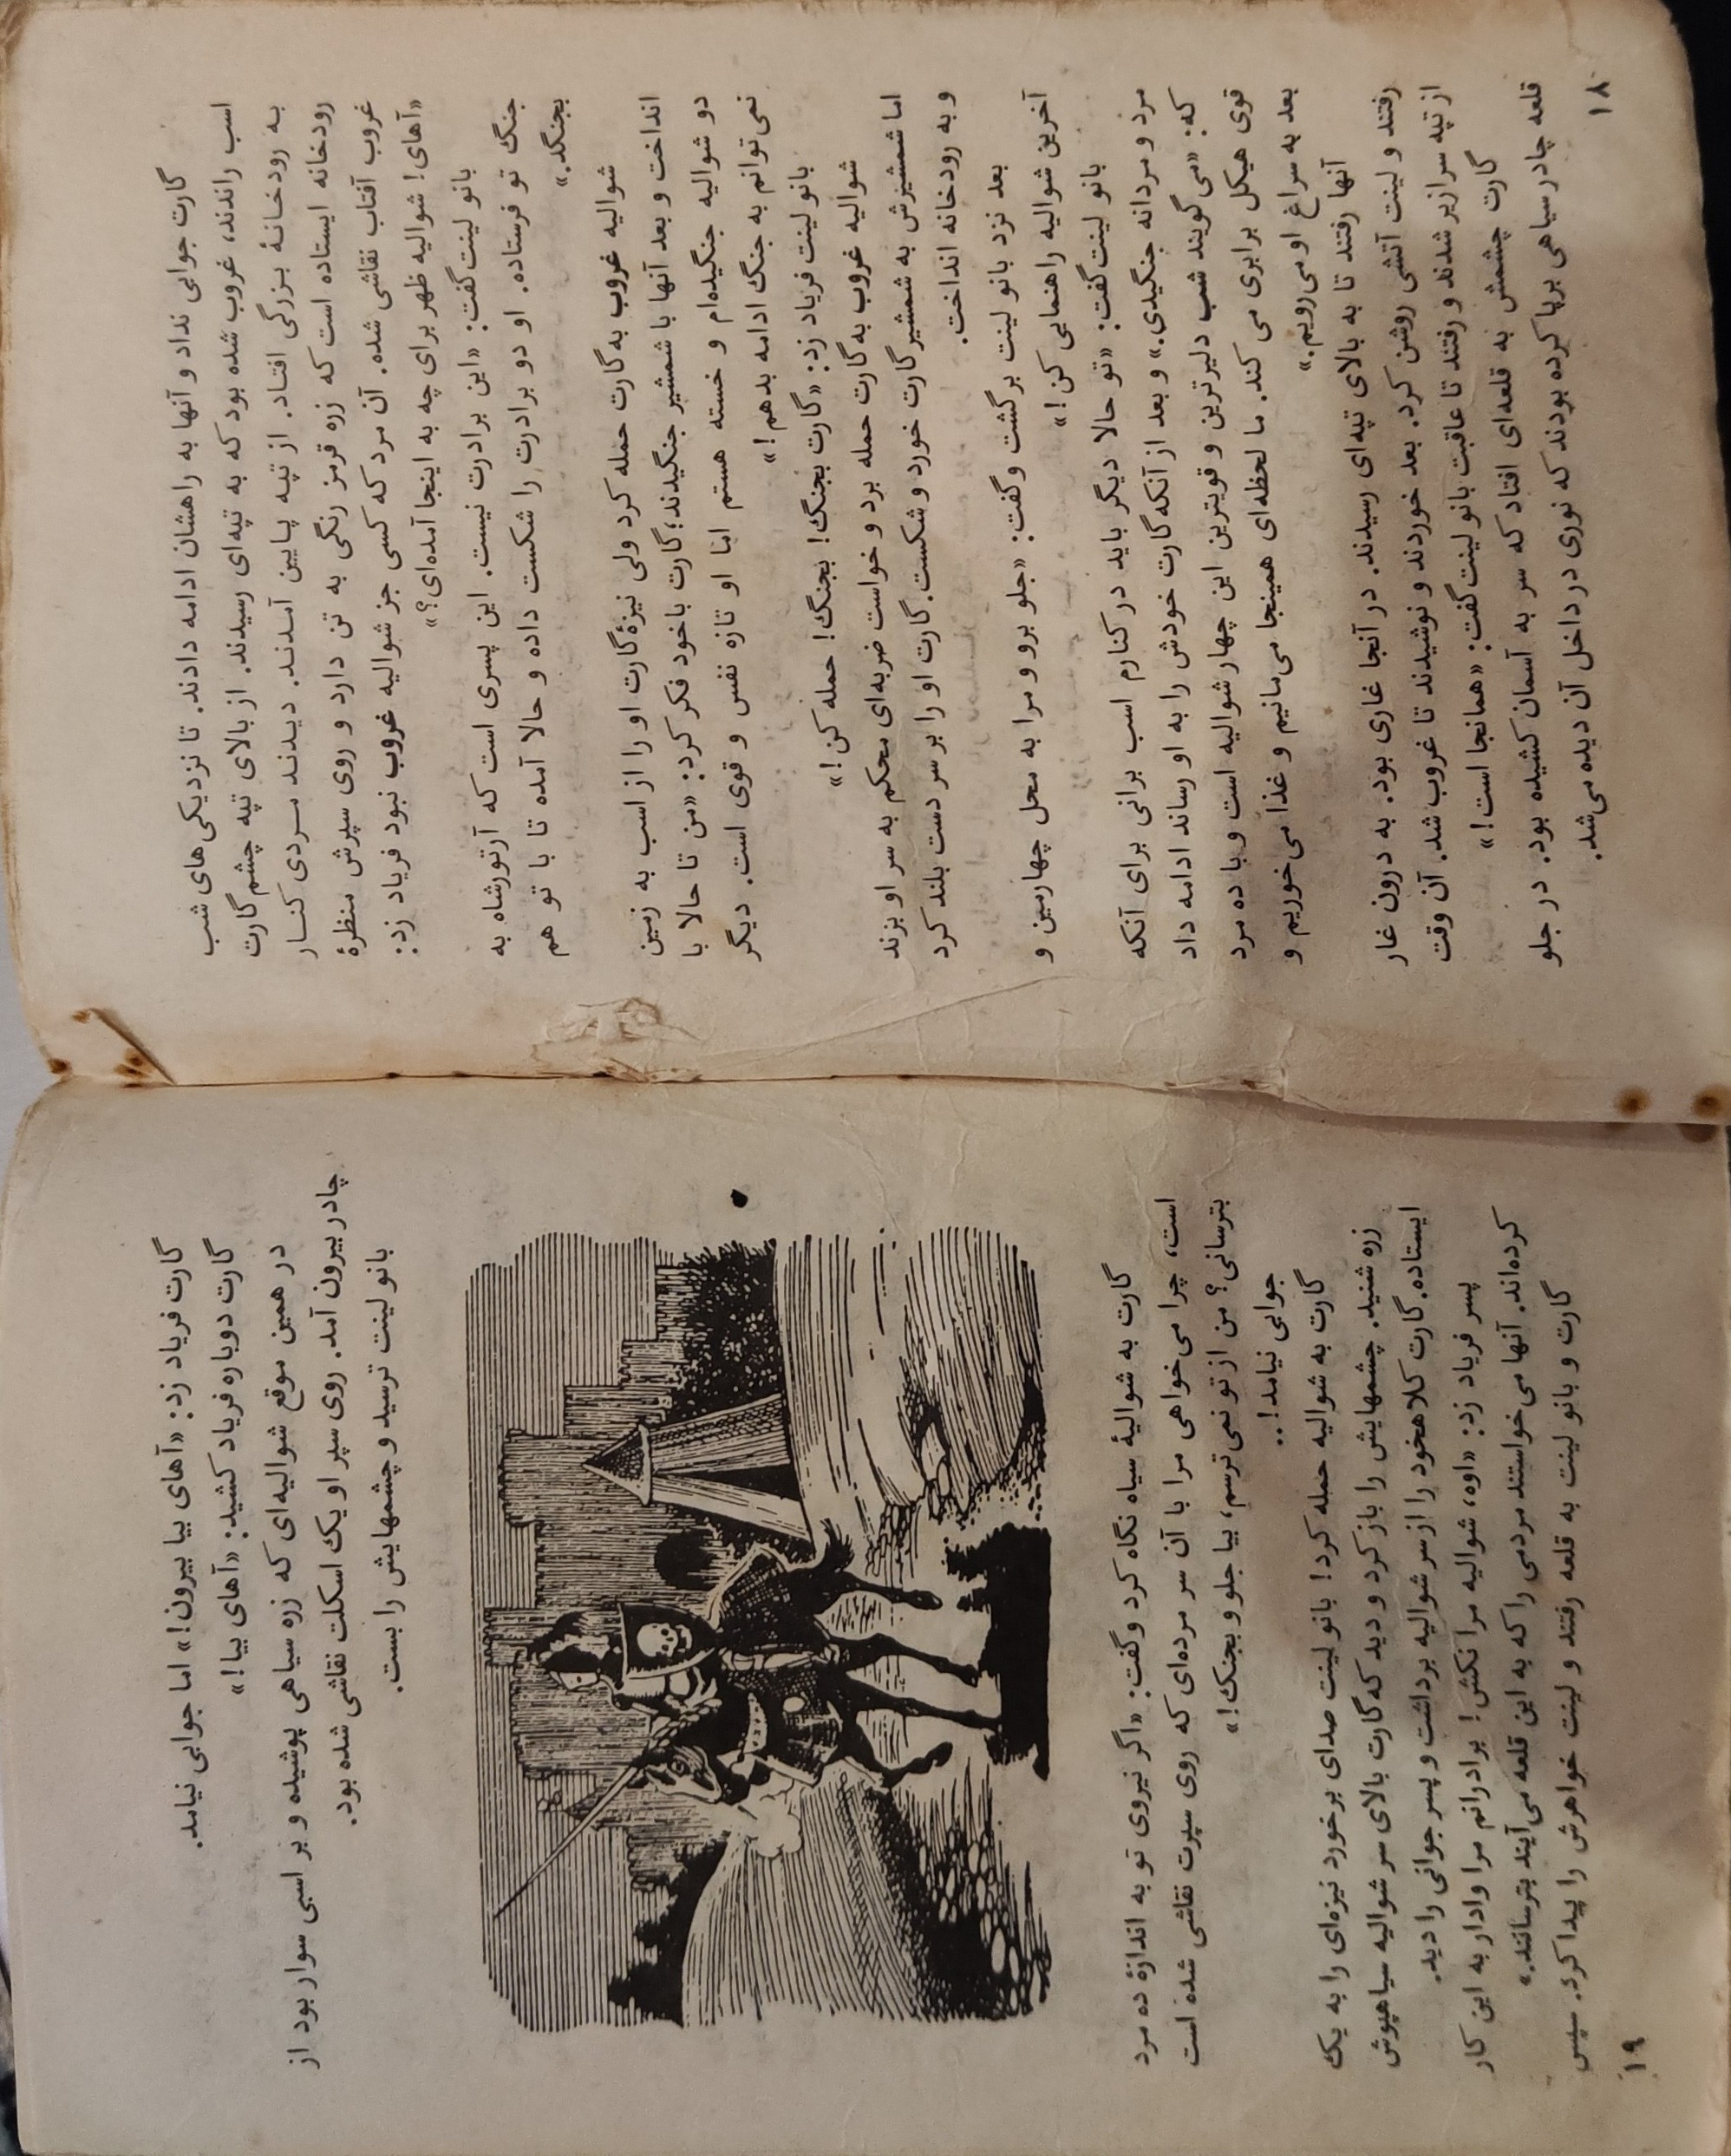 گارت جوابی نداد و آنها به راهشان ادامه دادند. تا نزدیکی‌های شب
اسب راندند، غروب شده بود که به تپه‌ای رسیدند. از بالای تپه چشم گارت
به رودخانهٔ بزرگی افتاد. از تپه پایین آمدند. دیدند مردی کنار
رودخانه ایستاده است که زره قرمز رنگی به تن دارد و روی سپرش منظرهٔ
غروب آفتاب نقاشی شده. آن مرد که کسی جز شوالیه غروب نبود فریاد زد:
«آهای! شوالیه ظهر برای چه به اینجا آمده‌ای؟»
بانو لینت گفت: «این برادرت نیست. این پسری است که آرتورشاه به
جنگ تو فرستاده. او دو برادرت را شکست داده و حالا آمده تا با تو هم
بجنگد.»
شوالیه غروب به گارت حمله کرد ولی نیزهٔ گارت او را از اسب به زمین
انداخت و بعد آنها با شمشیر جنگیدند؛ گارت باخود فکر کرد: «من تا حالا با
دو شوالیه جنگیده‌ام و خسته هستم اما او تازه نفس و قوی است. دیگر
نمی‌توانم به جنگ ادامه بدهم!»
بانو لینت فریاد زد: «گارت بجنگ! بجنگ! حمله کن!»
شوالیه غروب به گارت حمله برد و خواست ضربه‌ای محکم به سر او بزند
اما شمشیرش به شمشیر گارت خورد و شکست. گارت او را بر سر دست بلند کرد
و به رودخانه انداخت.
بعد نزد بانو لینت برگشت و گفت: «جلو برو و مرا به محل چهارمین و
آخرین شوالیه راهنمایی کن!»
بانو لینت گفت: «تو حالا دیگر باید در کنارم اسب برانی برای آنکه
مرد و مردانه جنگیدی.» و بعد از آنکه گارت خودش را به او رساند ادامه داد
که: «می‌گویند شب دلیرترین و قویترین این چهار شوالیه است و با ده مرد
قوی هیکل برابری می کند. ما لحظه‌ای همینجا می‌مانیم و غذا می‌خوریم و
بعد به سراغ او می‌رویم.»
آنها رفتند تا به بالای تپه‌ای رسیدند. در آنجا غاری بود. به درون غار
رفتند و لینت آتشی روشن کرد. بعد خوردند و نوشیدند تا غروب شد. آن وقت
از تپه سرازیر شدند و رفتند تا عاقبت بانو لینت گفت: «همانجا است!»
گارت چشمش به قلعه‌ای افتاد که سر به آسمان کشیده بود. در جلو
قلعه چادر سیاهی برپا کرده بودند که نوری در داخل آن دیده می‌شد.
۱۸
گارت فریاد زد: «آهای بیا بیرون!» اما جوابی نیامد.
گارت دوباره فریاد کشید: «آهای بیا!»
در همین موقع شوالیه‌ای که زره سیاهی پوشیده و بر اسبی سوار بود از
چادر بیرون آمد. روی سپر او یک اسکلت نقاشی شده بود.
بانو لینت ترسید و چشمهایش را بست.
گارت به شوالیهٔ سیاه نگاه کرد و گفت: «اگر نیروی تو به اندازهٔ ده مرد
است، چرا می‌خواهی مرا با آن سر مرده‌ای که روی سپرت نقاشی شده است
بترسانی؟ من از تو نمی‌ترسم، بیا جلو و بجنگ!»
جوابی نیامد!..
گارت به شوالیه حمله کرد! بانو لینت صدای برخورد نیزه‌ای را به یک
زره شنید. چشمهایش را باز کرد و دید که گارت بالای سر شوالیه سیاهپوش
ایستاده. گارت کلاهخود را از سر شوالیه برداشت و پسر جوانی را دید.
پسر فریاد زد: «اوه، شوالیه مرا نکش! برادرانم مرا وادار به این کار
کرده‌اند. آنها می‌خواستند مردمی را که به این قلعه می‌آیند بترسانند.»
گارت و بانو لینت به قلعه رفتند و لینت خواهرش را پیدا کرد. سپس
۱۹